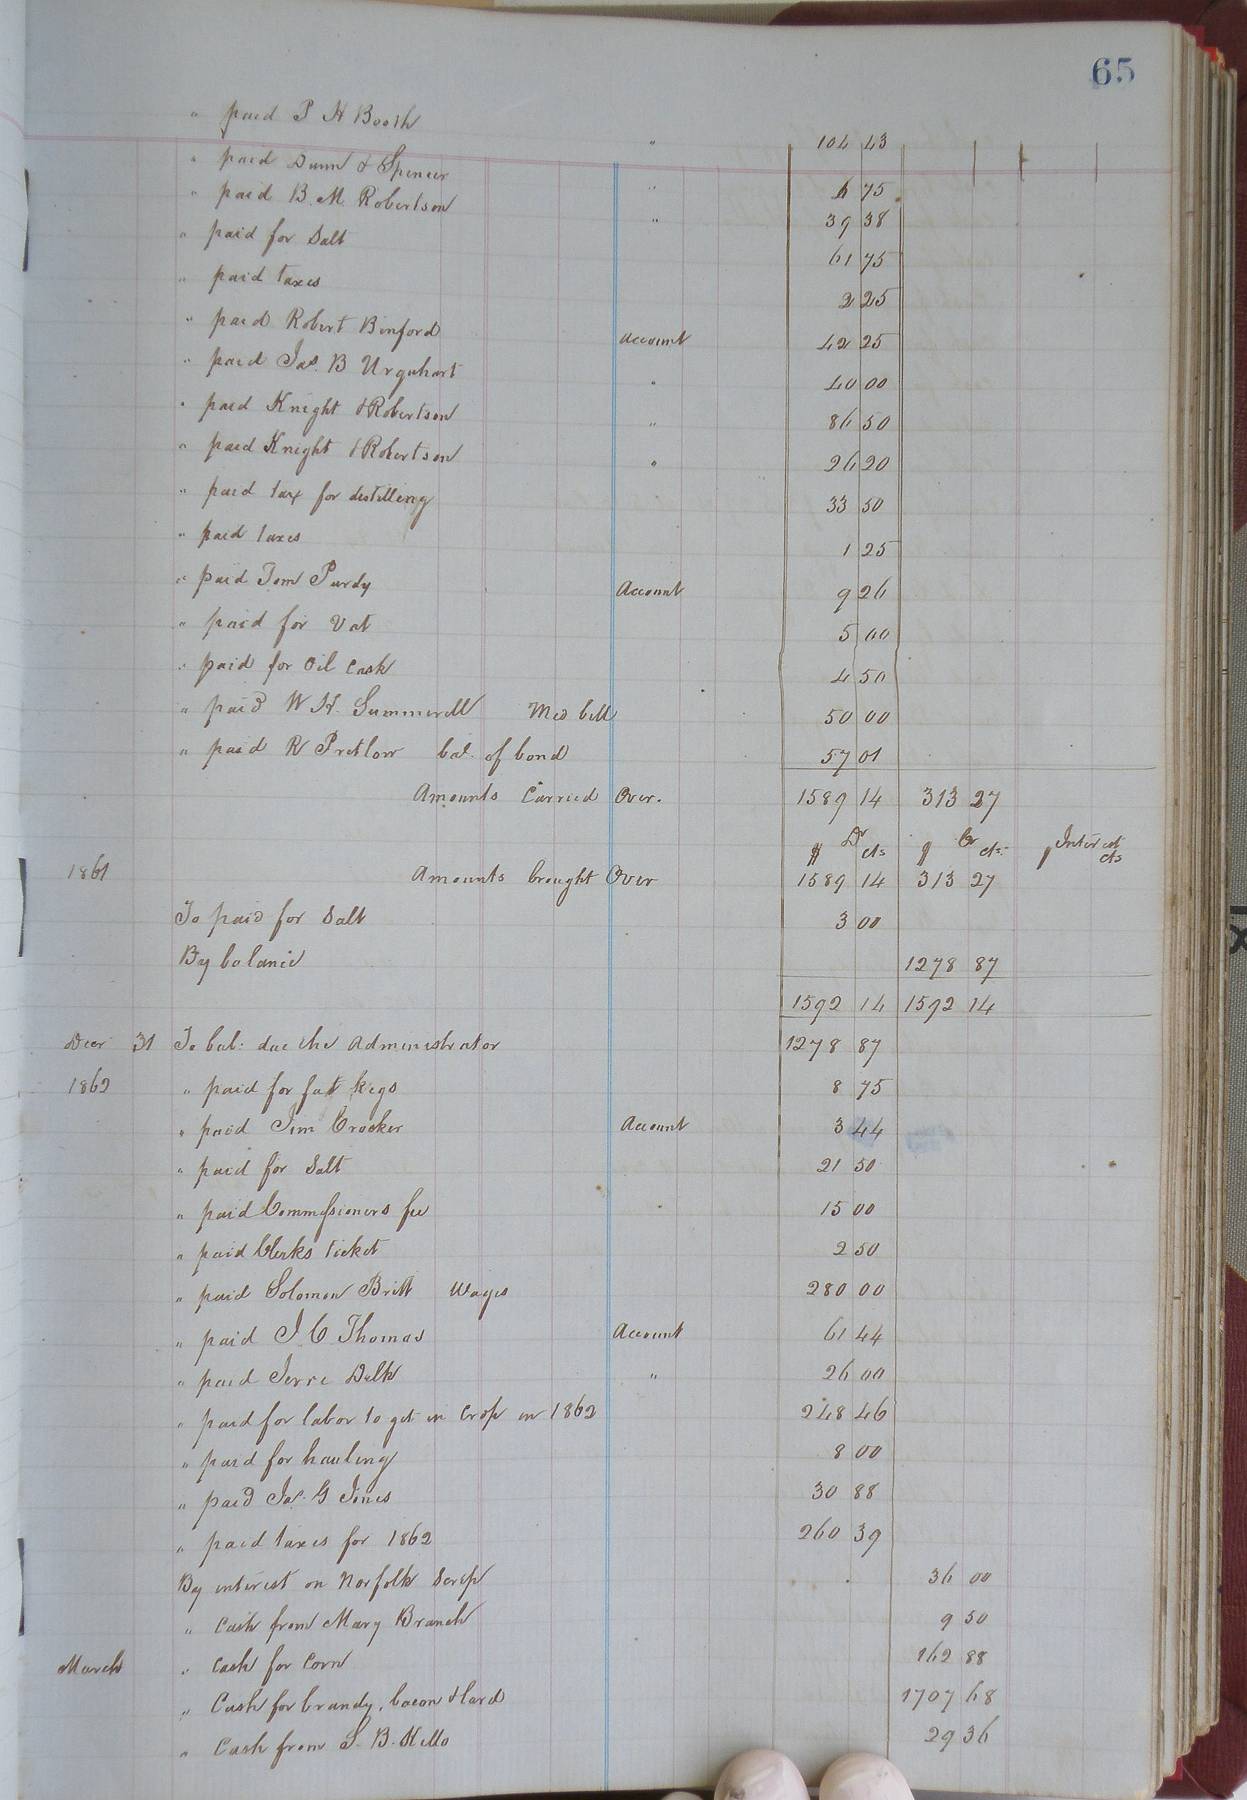 65
" paid P H Booth " 104 43
" paid Dunn & Spencer " 6 75
" paid B. M. Robertson " 39 38
" paid for Salt 61 75
" paid taxes 2 25
" paid Robert Binford Account 42 25
" paid Jas. B Urquhart " 40 00
" paid Knight & Robertson " 86 50
" paid Knight & Robertson " 26 20
" paid tax for distilling 33 50
" paid taxes 1 25
" paid Tom Purdy Account 9 26
" paid for Vat 5 00
" paid for Oil Cask 4 50
" paid W H. Summerell Med bill 50 00
" paid R Pretlow bal. of bond 57 01
Amounts Carried Over. 1589 14 313 27
$ Dr cts $ Cr cts. $ Interest cts
1861 Amounts brought Over 1589 14 313 27
To paid for Salt 3 00
By balance 1278 87
1592 14 1592 14
Decr 31 To bal: due the Administrator 1278 87
1862 " paid for fat kegs 8 75
" paid Jim Crocker Account 3 44
" paid for Salt 21 50
" paid Commissioners fee 15 00
" paid Clerks ticket 2 50
" paid Solomon Britt Wages 280 00
" paid J. C. Thomas Account 61 44
" paid Jerre Delk " 26 00
" paid for labor to get in Crop in 1862 248 46
" paid for hauling 8 00
" paid Jas. G Jones 30 88
" paid taxes for 1862 260 39
By interest on Norfolk Scrip 36 00
" Cash from Mary Branch 9 50
March " Cash for Corn 162 88
" Cash for brandy, bacon & lard 1707 68
" Cash from S. B. Kello 29 36